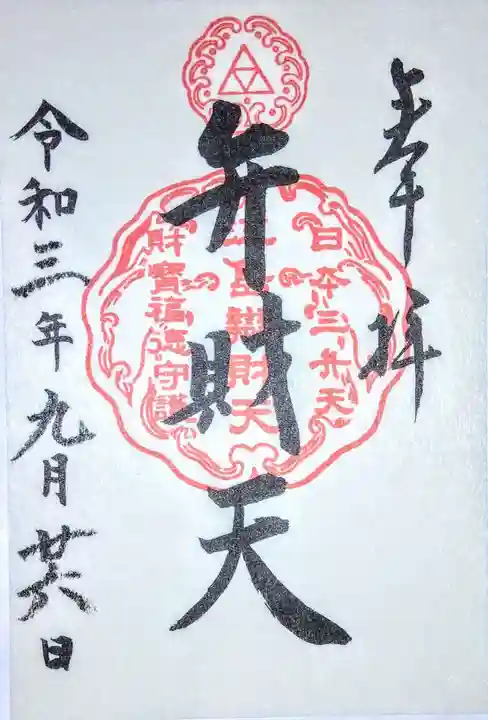 奉拝
日本三弁天
江島辨財天
財寶福徳守護
弁財天
令和三年九月廿六日